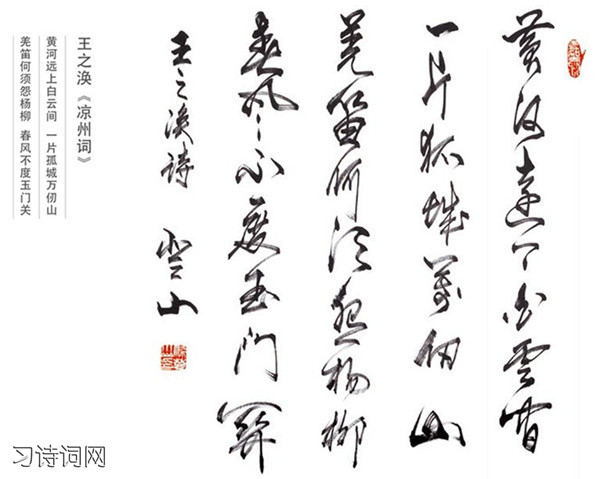 黄河远上白云间
一片孤城万仞山
羌笛何须怨杨柳
春风不度玉门关
王之涣诗 登山
王之涣《凉州词》
黄河远上白云间 一片孤城万仞山
羌笛何须怨杨柳 春风不度玉门关
习诗词网